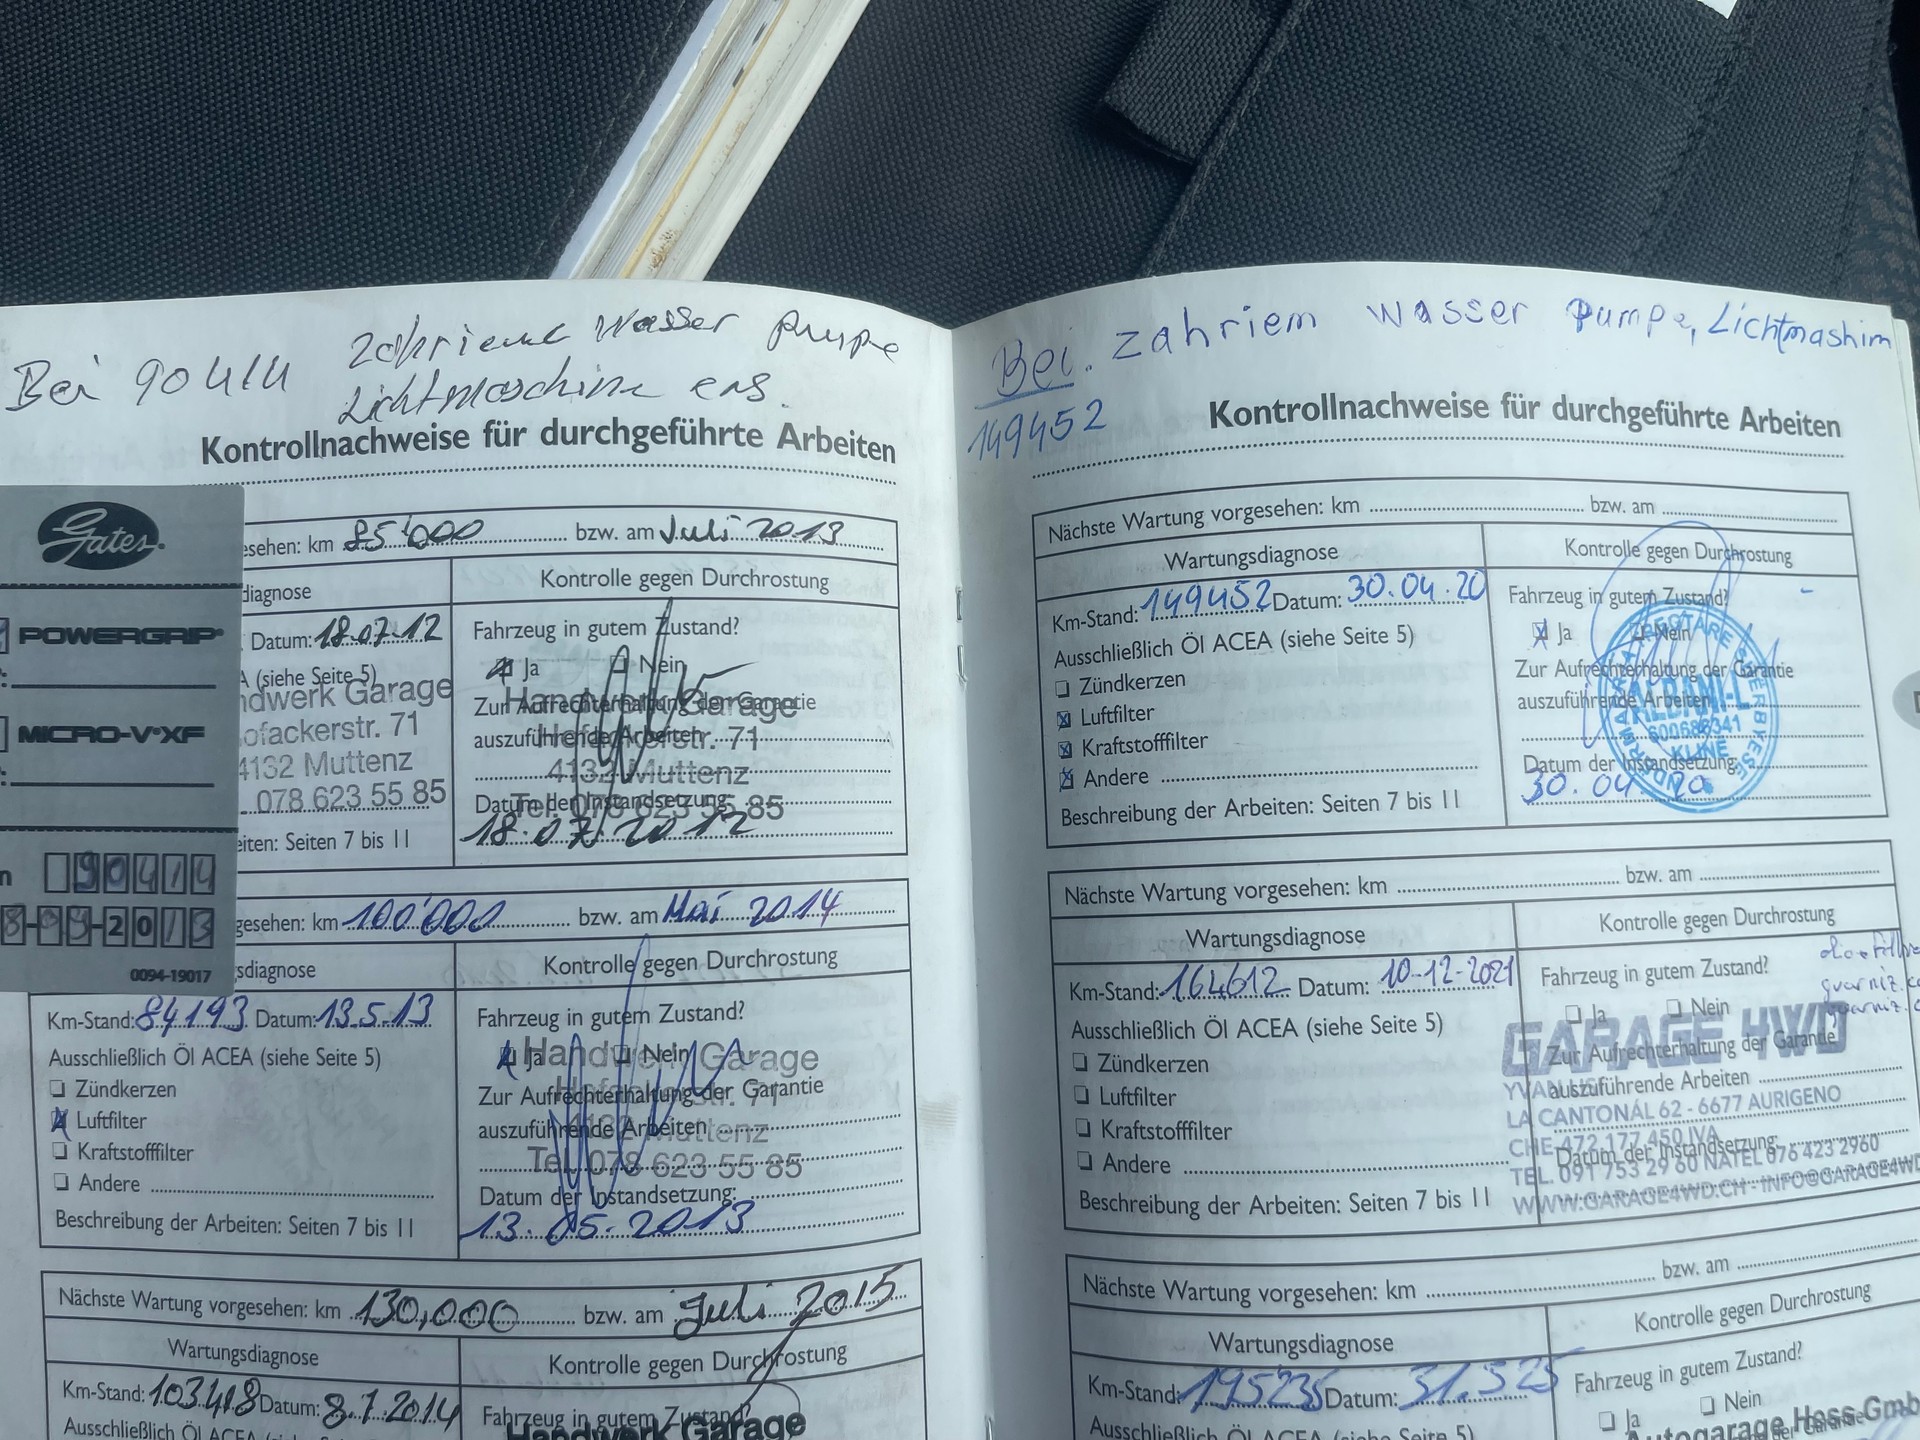 Bei 90414 Wasser pumpe
Lichtmaschine ens.
Kontrollnachweise für durchgeführte Arbeiten
Gates
POWERGRIP
MICRO-V XF
90414
2013
0094-19017
esehen: km 85'000 bzw. am Juli 2013
diagnose Kontrolle gegen Durchrostung
Datum: 18.07.12 Fahrzeug in gutem Zustand?
A (siehe Seite 5) Ja Nein
ndwerk Garage
Zur Aufrechterhaltung der Garantie
Handwerk Garage
ofackerstr. 71
auszuführende Arbeiten
Hofackerstr. 71
4132 Muttenz
4132 Muttenz
078 623 55 85
Datum der Instandsetzung:
Tel. 078 623 55 85
eiten: Seiten 7 bis 11 18.07.2012
gesehen: km 100'000 bzw. am Mai 2014
sdiagnose Kontrolle gegen Durchrostung
Km-Stand: 84193 Datum: 13.5.13 Fahrzeug in gutem Zustand?
Ausschließlich Öl ACEA (siehe Seite 5) Ja Nein
Handwerk Garage
Zündkerzen Zur Aufrechterhaltung der Garantie
Luftfilter auszuführende Arbeiten
4132 Muttenz
Kraftstofffilter
Tel. 078 623 55 85
Andere Datum der Instandsetzung:
Beschreibung der Arbeiten: Seiten 7 bis 11 13.05.2013
Nächste Wartung vorgesehen: km 130,000 bzw. am Juli 2015
Wartungsdiagnose Kontrolle gegen Durchrostung
Km-Stand: 103418 Datum: 8.7.2014 Fahrzeug in gutem Zustand?
Ausschließlich Öl ACEA (siehe Seite 5)
Handwerk Garage
Bei. zahriem Wasser Pumpe, Lichtmashim
149452
Kontrollnachweise für durchgeführte Arbeiten
Nächste Wartung vorgesehen: km bzw. am
Wartungsdiagnose Kontrolle gegen Durchrostung
Km-Stand: 149452 Datum: 30.04.20 Fahrzeug in gutem Zustand? -
Ausschließlich Öl ACEA (siehe Seite 5) Ja Nein
Zündkerzen Zur Aufrechterhaltung der Garantie
Luftfilter auszuführende Arbeiten
600686341
KLINE
Kraftstofffilter
Andere Datum der Instandsetzung:
Beschreibung der Arbeiten: Seiten 7 bis 11 30.04.20
Nächste Wartung vorgesehen: km bzw. am
Wartungsdiagnose Kontrolle gegen Durchrostung
Km-Stand: 164612 Datum: 10-12-2021 Fahrzeug in gutem Zustand?
guarniz.
Ausschließlich Öl ACEA (siehe Seite 5) Ja Nein
GARAGE 4WD
Zündkerzen Zur Aufrechterhaltung der Garantie
Luftfilter auszuführende Arbeiten
LA CANTONÁL 62 - 6677 AURIGENO
Kraftstofffilter
CHE-472.177.450 IVA
Andere Datum der Instandsetzung:
TEL. 091 753 29 60 NATEL 076 423 2960
Beschreibung der Arbeiten: Seiten 7 bis 11
WWW.GARAGE4WD.CH - INFO@GARAGE4WD
Nächste Wartung vorgesehen: km bzw. am
Wartungsdiagnose Kontrolle gegen Durchrostung
Km-Stand: 195235 Datum: 31.5.25 Fahrzeug in gutem Zustand?
Ausschließlich Öl ACEA (siehe Seite 5) Ja Nein
Autogarage Hoss Gmb